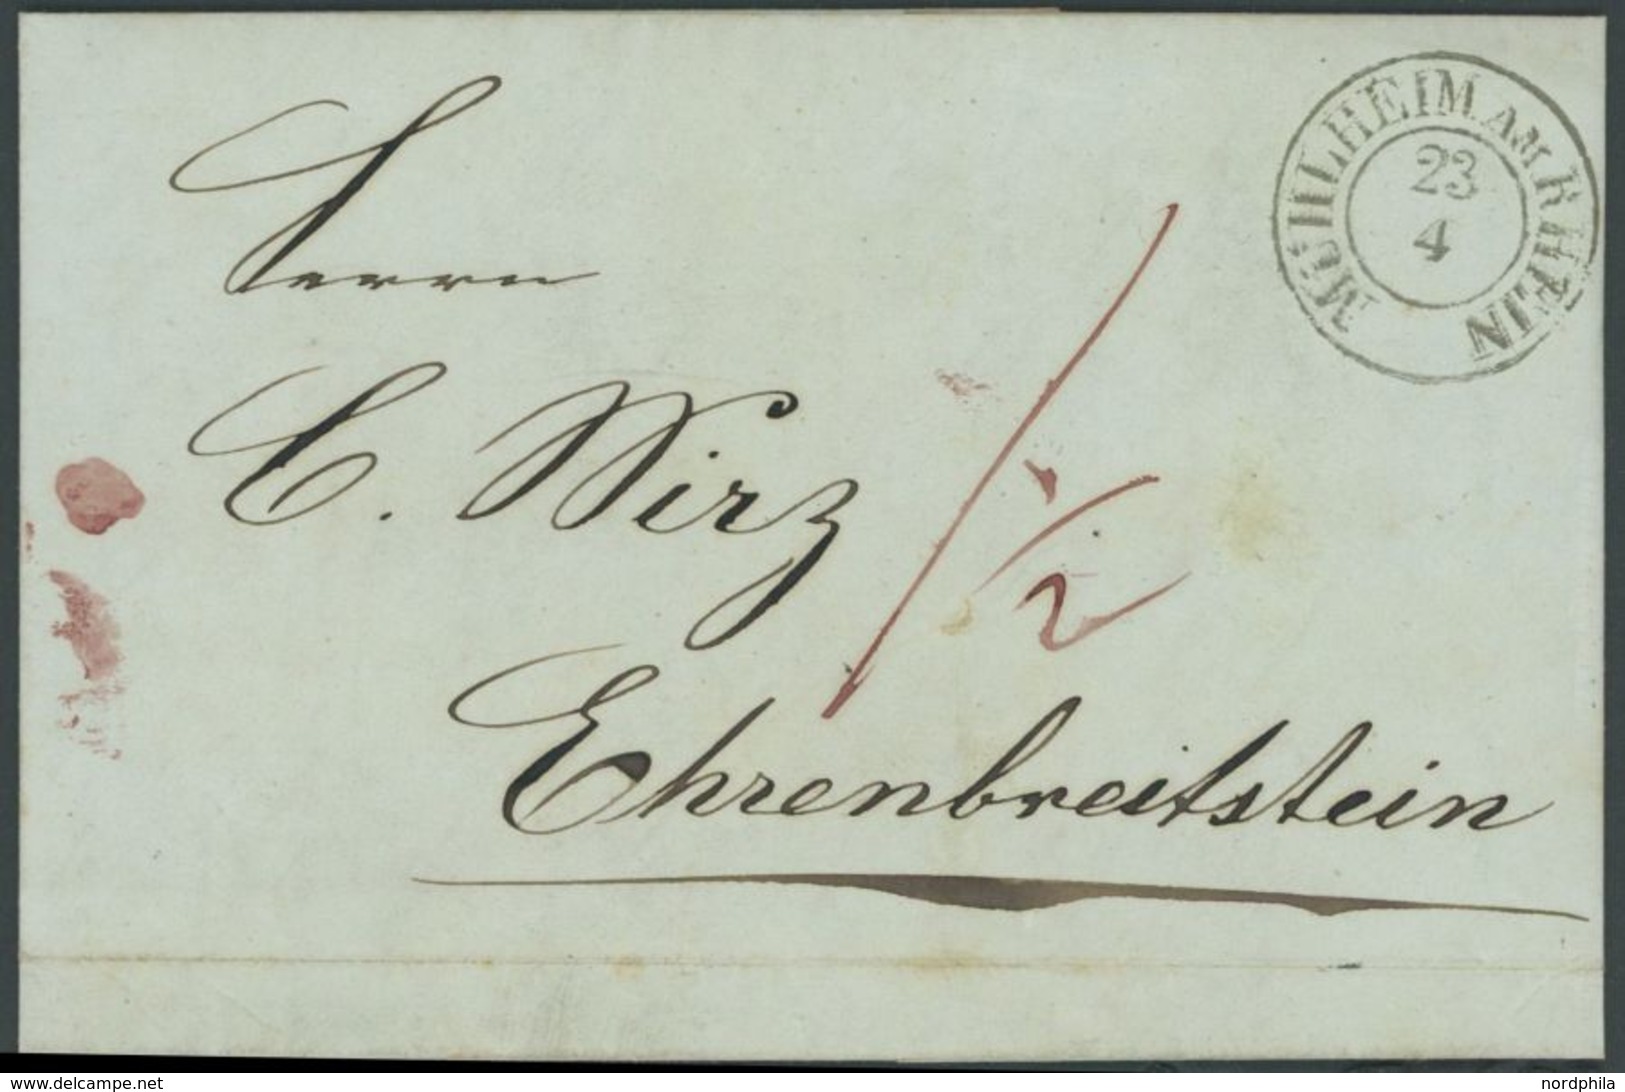 Herrn
C. Wirz
Ehrenbreitstein
MÜHLHEIM AM RHEIN
23
4
1/2
www.delcampe.net
nordphila